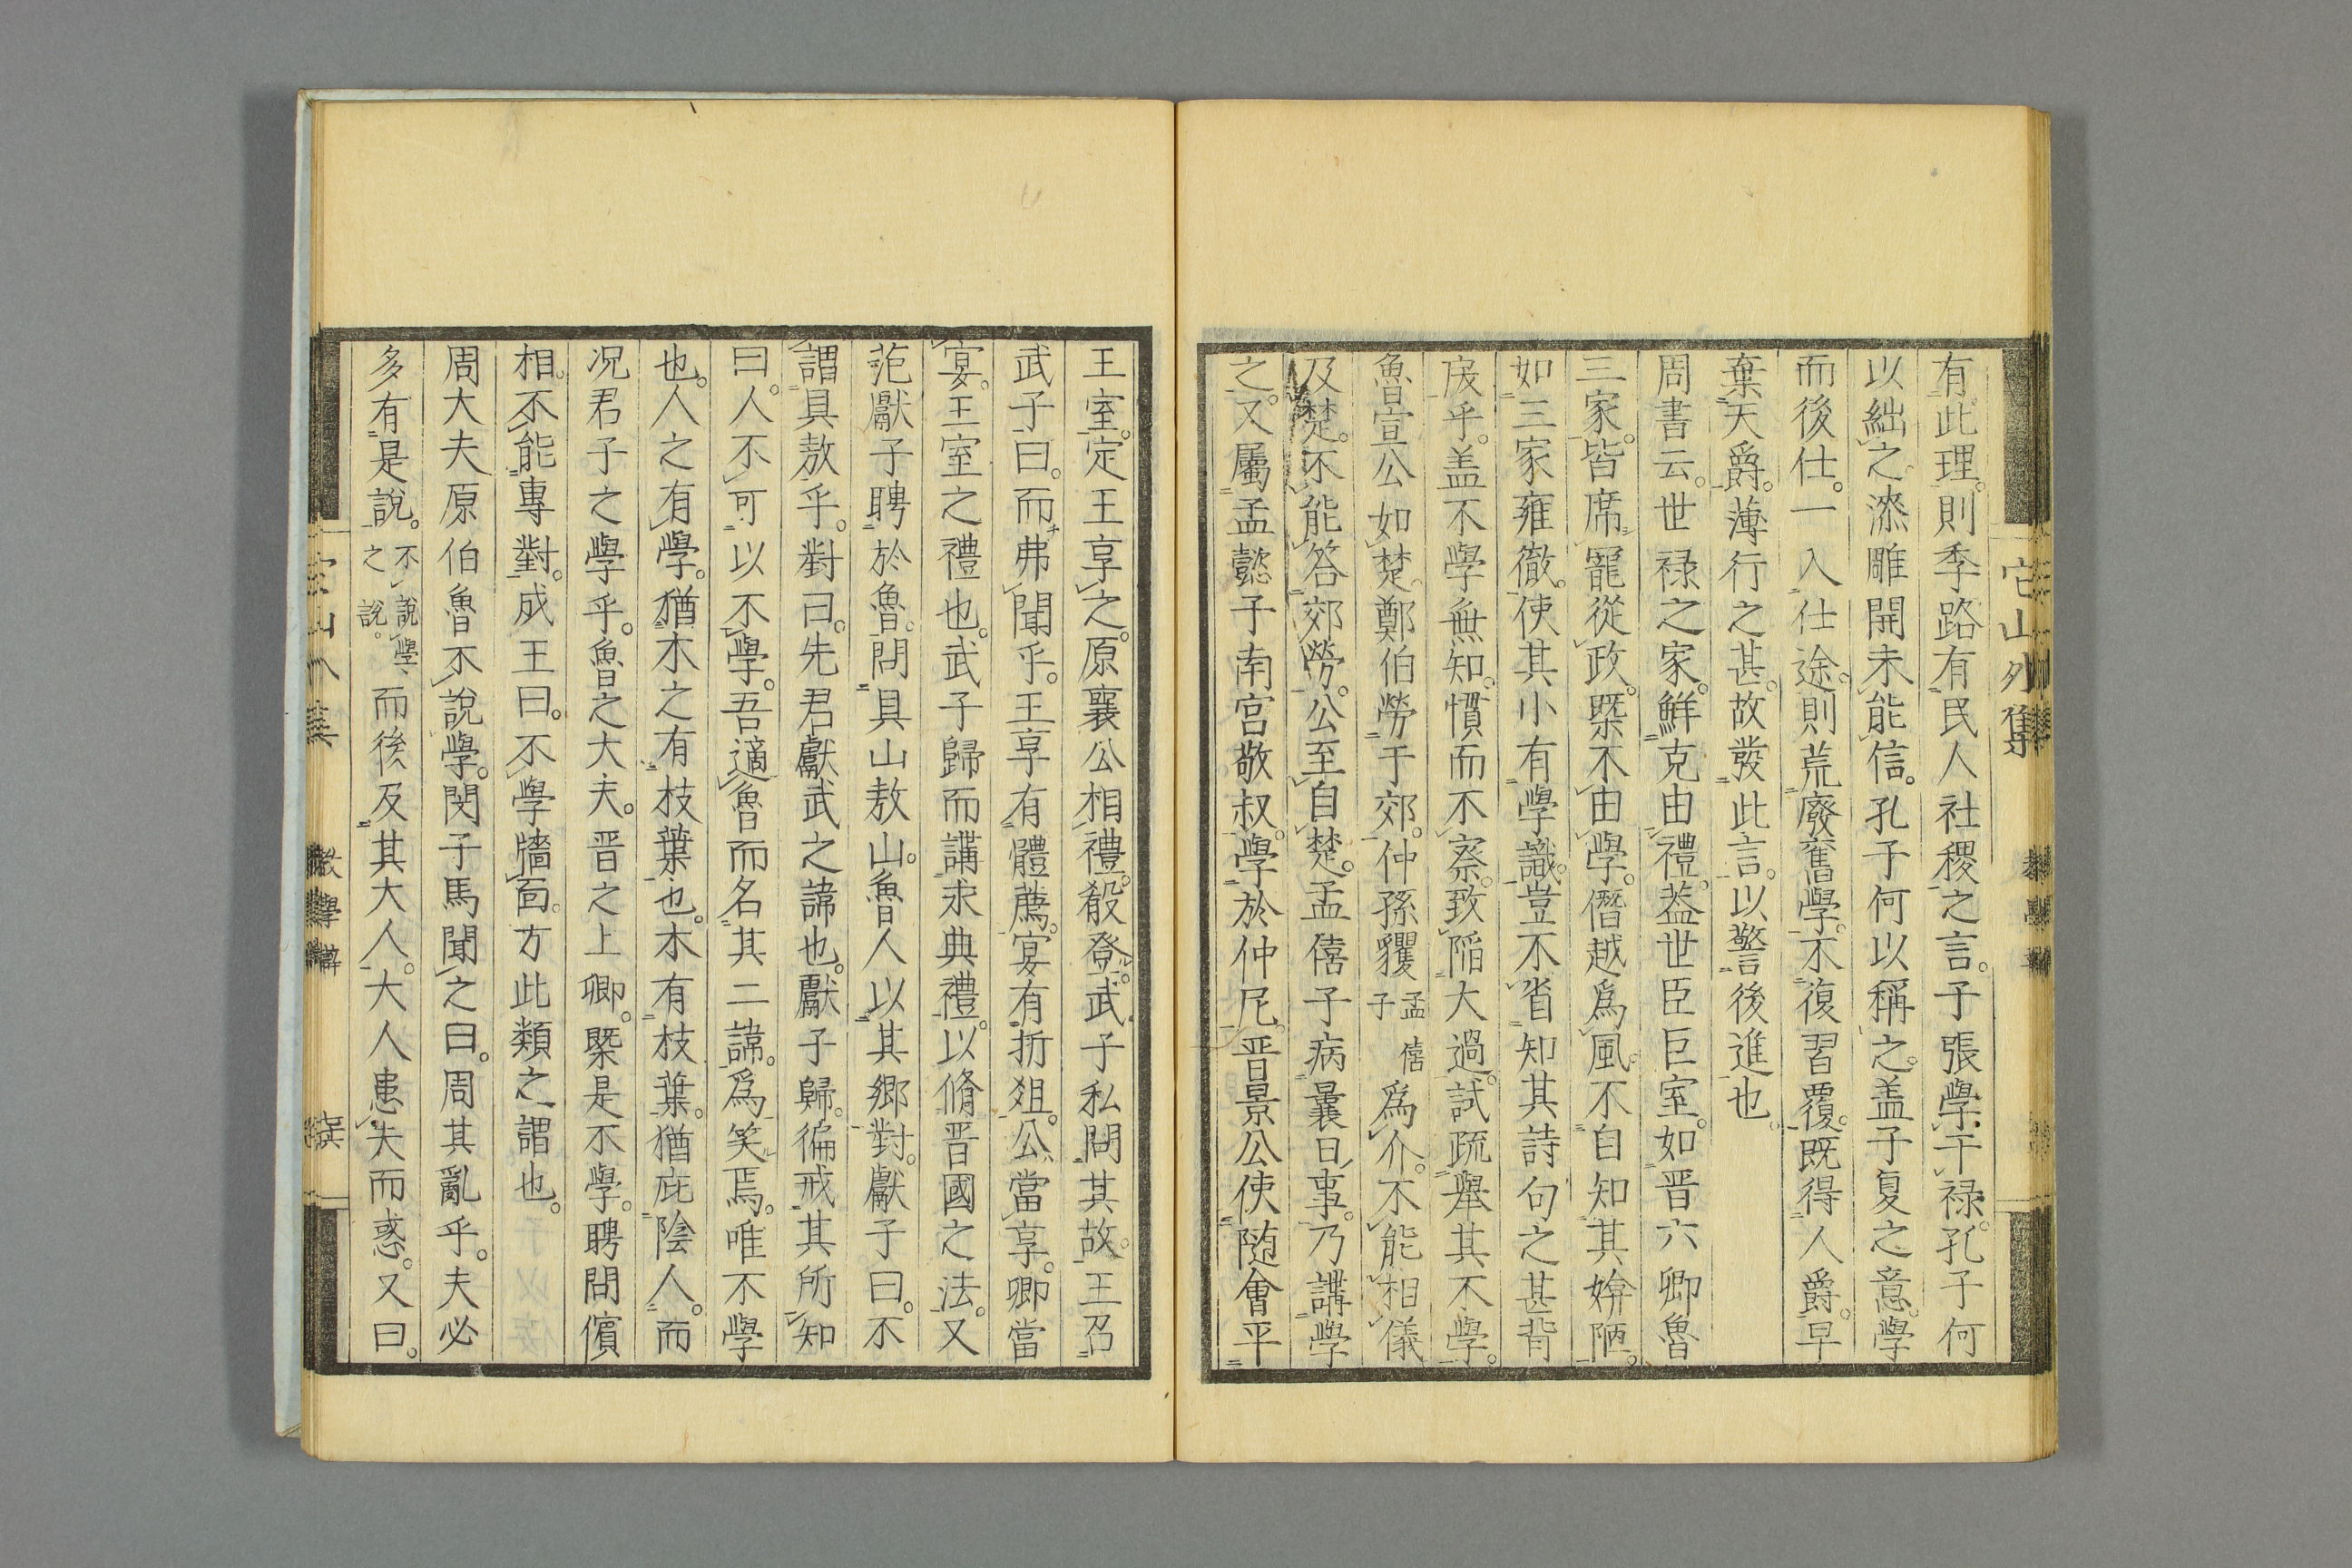 有此理。則季路有民人社稷之言。子張學干祿。孔子何
以絀之。漆雕開未能信。孔子何以稱之。盖子夏之意。學
而後仕。一入仕途。則荒廢舊學。不復習覆。既得人爵。早
棄天爵。薄行之甚。故發此言。以警後進也。
周書云。世禄之家。鮮克由禮。葢世臣巨室。如晋六卿魯
三家。皆席寵從政。槩不由學。僭越爲風。不自知其媕陋。
如三家雍徹。使其小有學識。豈不省知其詩句之甚背
戾乎。盖不學無知。慣而不察。致陷大過。試疏舉其不學。
魯宣公如楚。鄭伯勞于郊。仲孫貜孟僖子爲介。不能相儀
及楚。不能答郊勞。公至自楚。孟僖子病曩日事。乃講學
之。又屬孟懿子南宮敬叔。學於仲尼。晋景公使随會平
王室。定王享之。原襄公相禮。殽登。武子私問其故。王召
武子曰。而弗聞乎。王享有體薦。宴有折俎。公當享。卿當
宴。王室之禮也。武子歸而講求典禮。以脩晋國之法。又
范獻子聘於魯。問具山敖山。魯人以其鄉對。獻子曰。不
謂具敖乎。對曰。先君獻武之諱也。獻子歸。徧戒其所知
曰。人不可以不學。吾適魯而名其二諱。爲笑焉。唯不學
也。人之有學。猶木之有枝葉也。木有枝葉。猶庇陰人。而
况君子之學乎。魯之大夫。晋之上卿。槩是不學。聘問儐
相。不能專對。成王曰。不學牆面。方此類之謂也。
周大夫原伯魯不說學。閔子馬聞之曰。周其亂乎。夫必
多有是說。不說學之說。而後及其大人。大人患失而惑。又曰。
它山外集